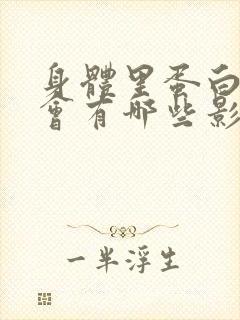 身體里蛋白
會有哪些影
一半浮生